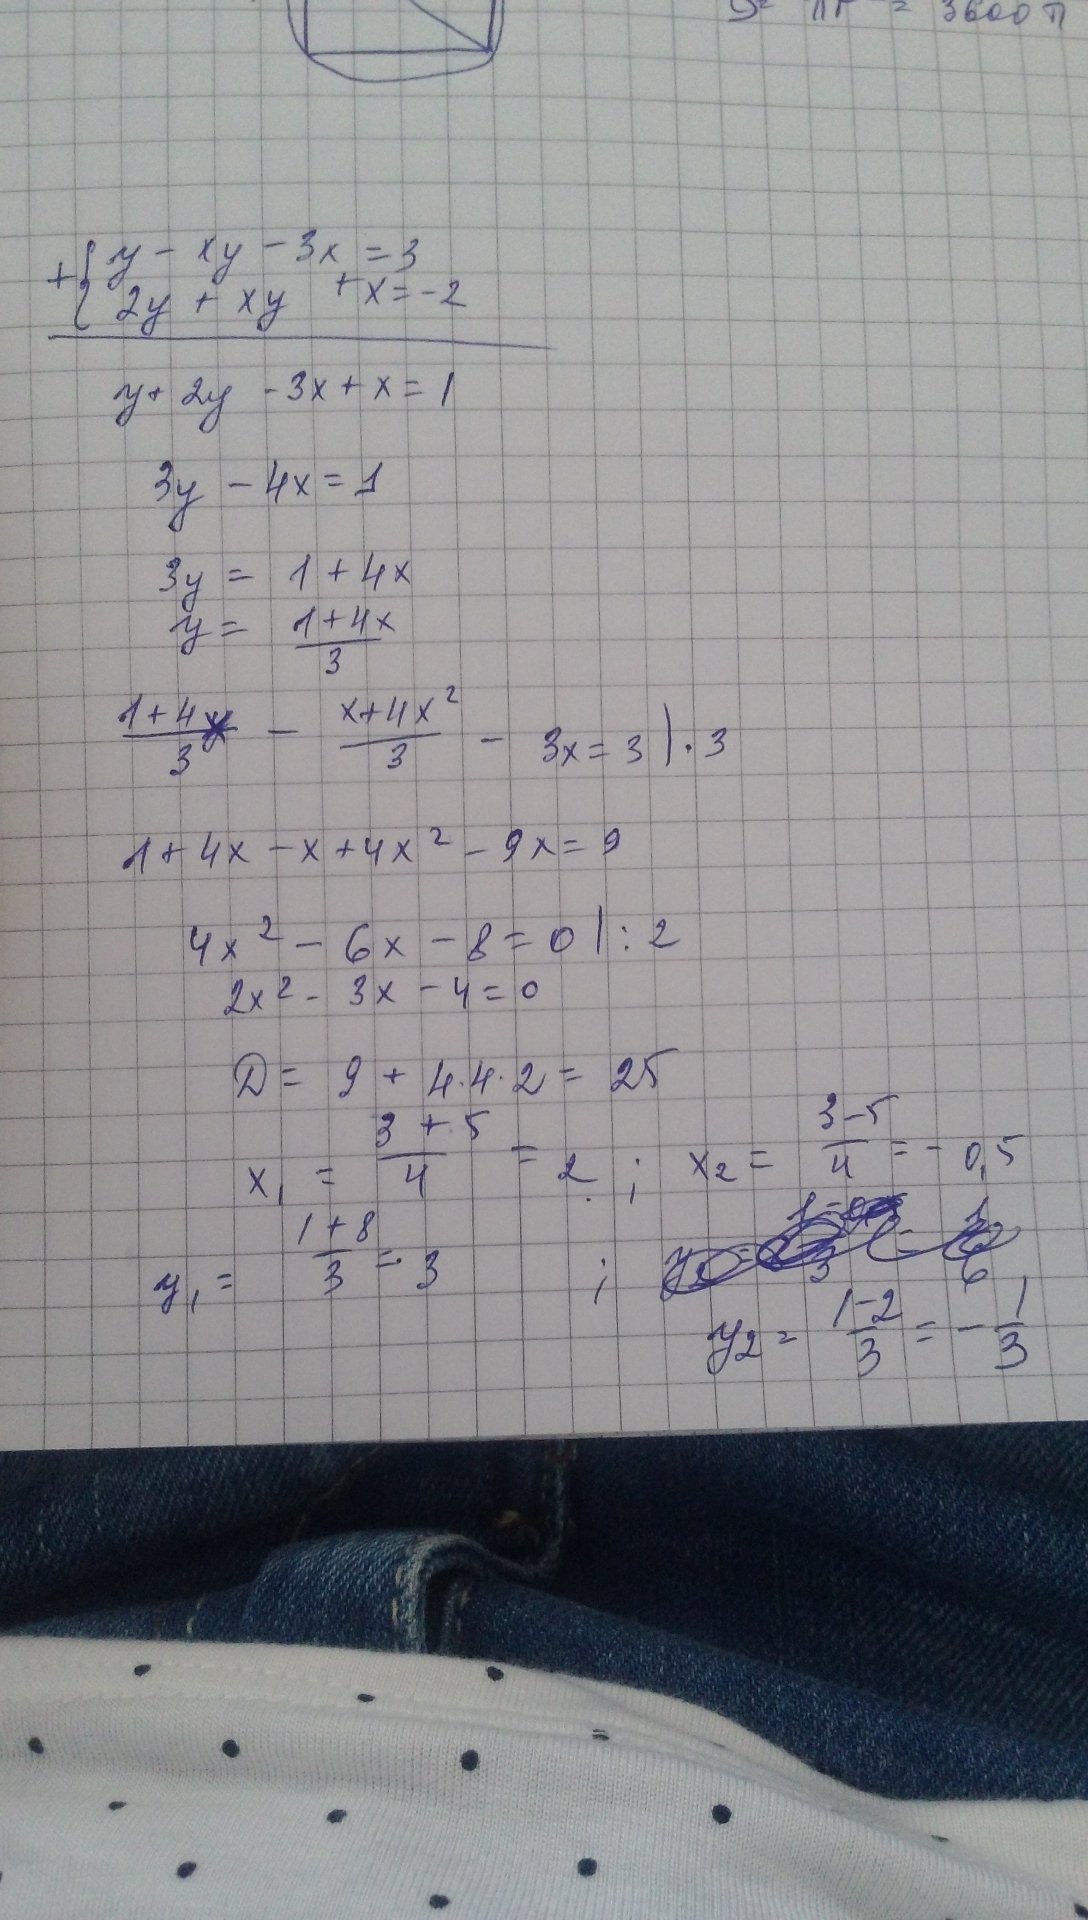 S= πr² = 3600π
+{ y - xy - 3x = 3
2y + xy + x = -2
y + 2y - 3x + x = 1
3y - 4x = 1
3y = 1 + 4x
y = (1+4x)/3
(1+4x)/3 - (x+4x²)/3 - 3x = 3 | · 3
1 + 4x - x + 4x² - 9x = 9
4x² - 6x - 8 = 0 | : 2
2x² - 3x - 4 = 0
D = 9 + 4·4·2 = 25
x₁ = (3+5)/4 = 2 ; x₂ = (3-5)/4 = - 0,5
y₁ = (1+8)/3 = 3 ;
y₂ = (1-2)/3 = - 1/3